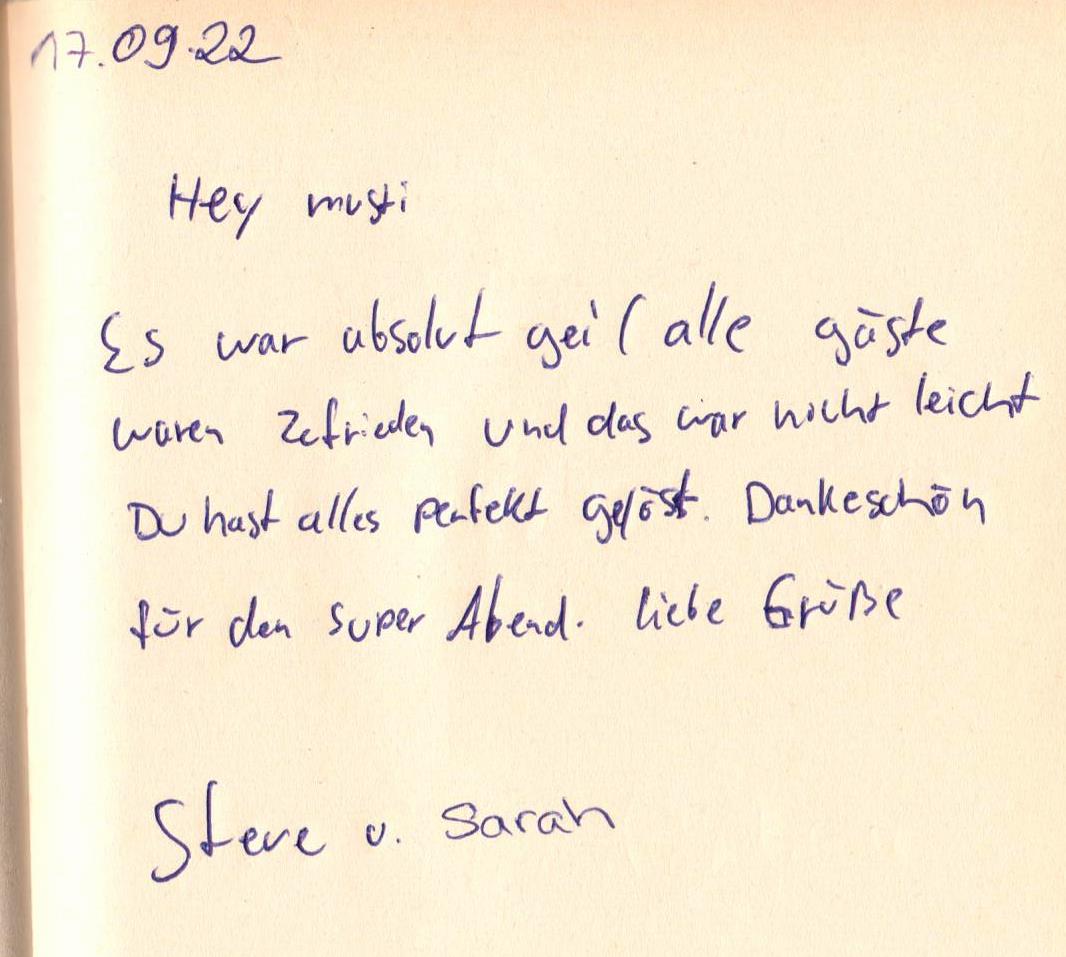 17.09.22
Hey musti
Es war absolut geil alle gäste
waren Zefrieden und das war nicht leicht
Du hast alles perfekt gelöst. Dankeschön
für den super Abend. liebe Grüße
Steve u. Sarah